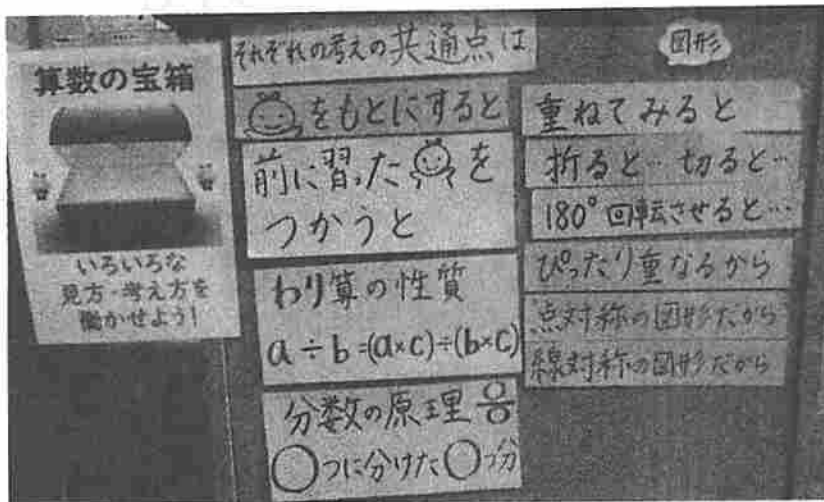 算数の宝箱
いろいろな
見方・考え方を
働かせよう!
それぞれの考えの共通点は
をもとにすると
前に習ったを
つかうと
わり算の性質
a÷b=(a×c)÷(b×c)
分数の原理 ○/○
○つに分けた○つ分
図形
重ねてみると
折ると… 切ると…
180°回転させると…
ぴったり重なるから
点対称の図形だから
線対称の図形だから